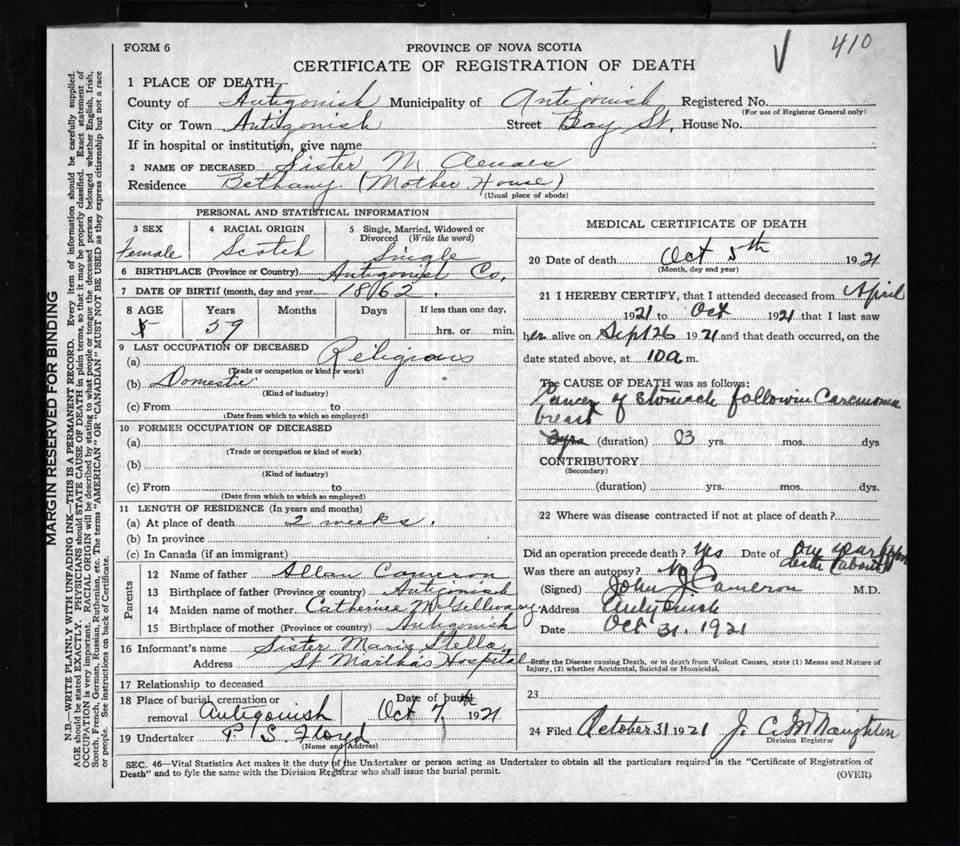 FORM 6
410
PROVINCE OF NOVA SCOTIA
CERTIFICATE OF REGISTRATION OF DEATH
1 PLACE OF DEATH
County of Antigonish Municipality of Antigonish Registered No.
(For use of Registrar General only)
City or Town Antigonish Street Bay St, House No.
If in hospital or institution, give name
2 NAME OF DECEASED Sister M
Residence Bethany (Mother House)
(Usual place of abode)
PERSONAL AND STATISTICAL INFORMATION
3 SEX Female
4 RACIAL ORIGIN Scotch
5 Single, Married, Widowed or Divorced (Write the word) Single
6 BIRTHPLACE (Province or Country) Antigonish Co,
7 DATE OF BIRTH (month, day and year) 1862.
8 AGE Years 59 Months Days If less than one day, hrs. or min.
9 LAST OCCUPATION OF DECEASED
(a) Religious
(Trade or occupation or kind or work)
(b) Domestic
(Kind of industry)
(c) From to
(Date from which to which so employed)
10 FORMER OCCUPATION OF DECEASED
(a)
(Trade or occupation or kind of work)
(b)
(Kind of industry)
(c) From to
(Date from which to which so employed)
11 LENGTH OF RESIDENCE (In years and months)
(a) At place of death 2 weeks.
(b) In province
(c) In Canada (if an immigrant)
Parents
12 Name of father Allan Cameron
13 Birthplace of father (Province or country) Antigonish
14 Maiden name of mother Catherine McGillivary
15 Birthplace of mother (Province or country) Antigonish
16 Informant's name Sister Maris Stella,
Address St Martha's Hospital
17 Relationship to deceased
18 Place of burial, cremation or removal Antigonish Date of burial Oct 7th 1921
19 Undertaker P S. Floyd
(Name and Address)
MEDICAL CERTIFICATE OF DEATH
20 Date of death Oct 5th 1921
(Month, day and year)
21 I HEREBY CERTIFY, that I attended deceased from April
1921 to Oct 1921 that I last saw
her alive on Sept 26 1921 and that death occurred, on the
date stated above, at 10 a m.
The CAUSE OF DEATH was as follows:
Cancer of stomach followin Carcinoma
breast
3yrs (duration) 03 yrs. mos. dys
CONTRIBUTORY
(Secondary)
(duration) yrs. mos. dys.
22 Where was disease contracted if not at place of death?
Did an operation precede death? Yes Date of
Was there an autopsy? No
(Signed) John J. Cameron M.D.
Address Antigonish
Date Oct 31. 1921
State the Disease causing Death, or in death from Violent Causes, state (1) Means and Nature of
Injury, (2) whether Accidental, Suicidal or Homicidal.
23
24 Filed October 31 1921 J. C. McNaughton
Division Registrar
SEC. 46—Vital Statistics Act makes it the duty of the Undertaker or person acting as Undertaker to obtain all the particulars required in the "Certificate of Registration of
Death" and to fyle the same with the Division Registrar who shall issue the burial permit.
(OVER)
MARGIN RESERVED FOR BINDING
N.B.—WRITE PLAINLY WITH UNFADING INK—THIS IS A PERMANENT RECORD. Every item of information should be carefully supplied.
AGE should be stated EXACTLY. PHYSICIANS should STATE CAUSE OF DEATH in plain terms, so that it may be properly classified. Exact statement of
OCCUPATION is very important. RACIAL ORIGIN will be described by stating to what people or tongue the deceased person belonged whether English, Irish,
Scotch, French, German, Russian, Ruthenian, etc. The terms "AMERICAN" OR "CANADIAN" MUST NOT BE USED as they express citizenship but not a race
or people. See instructions on back of Certificate.